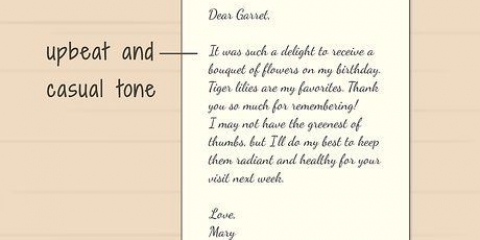 upbeat and
casual tone
Dear Garret,
It was such a delight to receive a
bouquet of flowers on my birthday.
Tiger lilies are my favorites. Thank
you so much for remembering!
I may not have the greenest of
thumbs, but I'll do my best to keep
them radiant and healthy for your
visit next week.
Love,
Mary